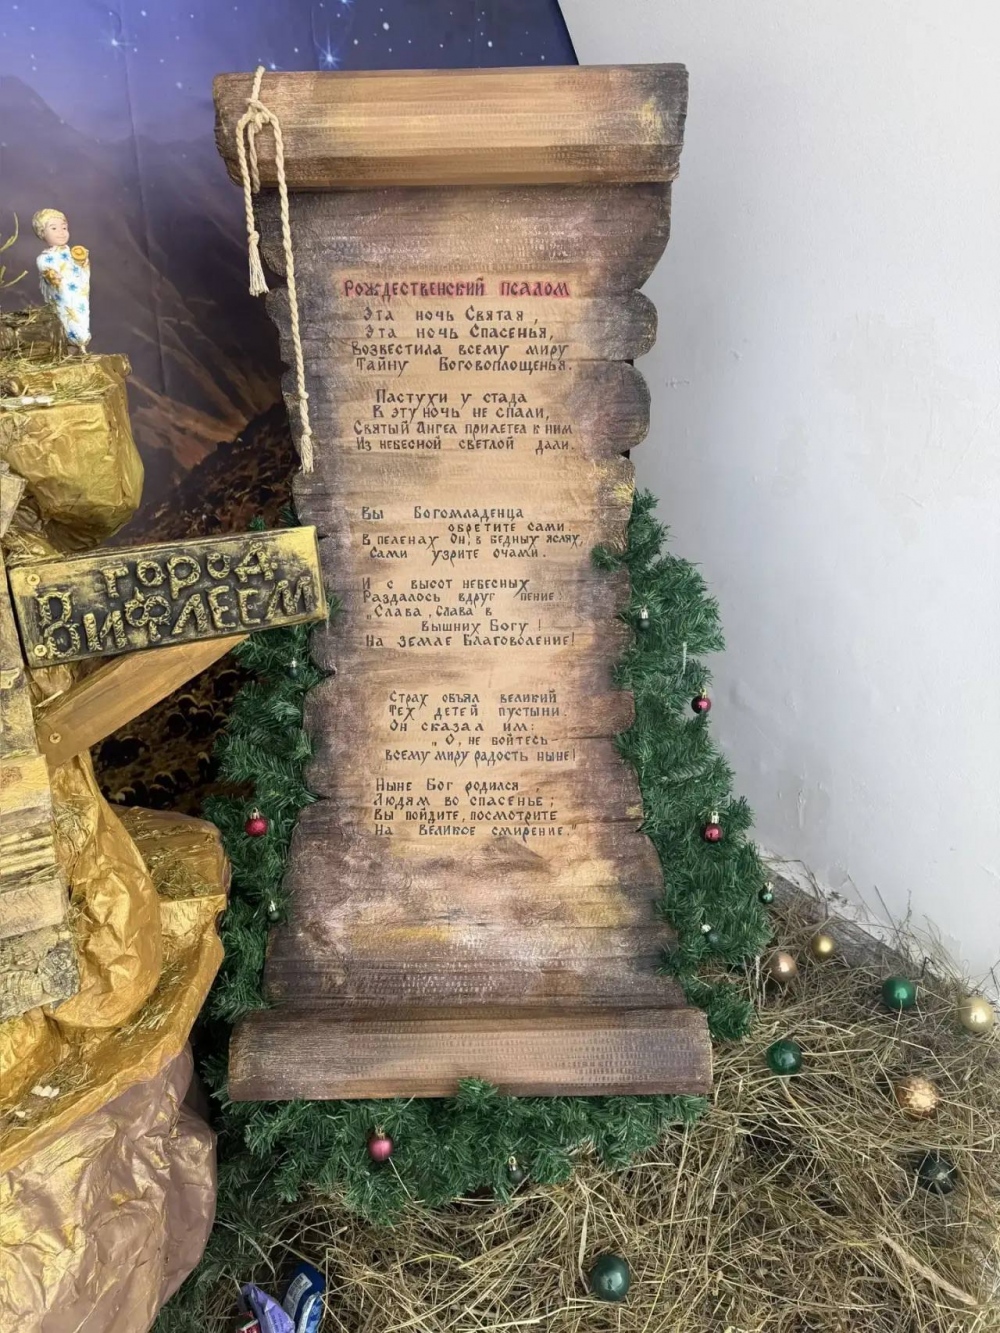 Рождественский псалом
Эта ночь Святая,
Эта ночь Спасенья,
Возвестила всему миру
Тайну Боговоплощенья.
Пастухи у стада
В эту ночь не спали,
Святый Ангел прилетел к ним
Из небесной светлой дали.
Вы Богомладенца
обретите сами.
В пеленах Он, в бедных яслях,
Сами узрите очами.
И с высот небесных
Раздалось вдруг пение:
„Слава, слава в
вышних Богу!
На земле Благоволение!
Страх объял великий
Тех детей пустыни.
Он сказал им:
„О, не бойтесь-
всему миру радость ныне!
Ныне Бог родился,
Людям во спасенье;
Вы пойдите, посмотрите
На великое смирение."
город
Вифлеем